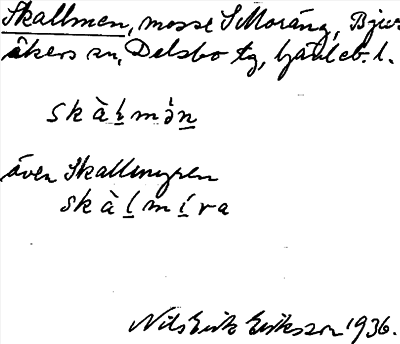 Skallmen, mosse S Moräng, Bjur-
åkers sn, Delsbo tg, Gävleb. l.
skàl̲mə̀n̲
även Skallmyren
skàl̲mí̲ra
Nils Erik Eriksson 1936.